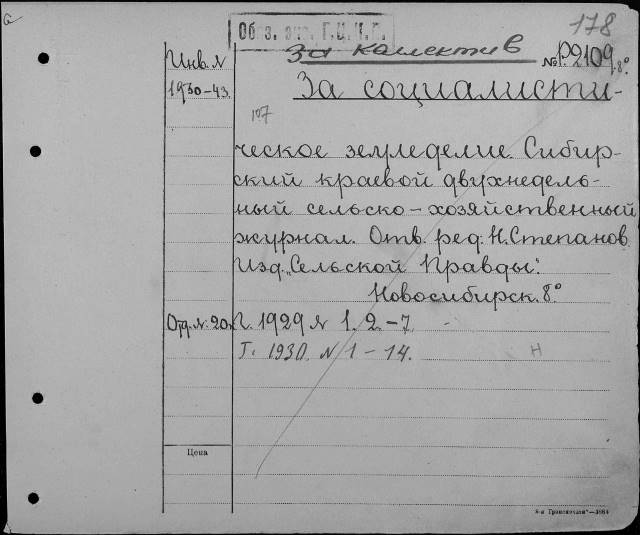 178
За колектив
№ P.2109 8°
Инв. №
1930-43.
За социалисти-
107
ческое земледелие. Сибир-
ский краевой двухнедель-
ный сельско-хозяйственный
журнал. Отв. ред. Н. Степанов
Изд. „Сельской Правды".
Новосибирск. 8°
Отд. №: 20к.
Г. 1929 № 1. 2. - 7
Г. 1930. № 1 - 14.
н
Цена